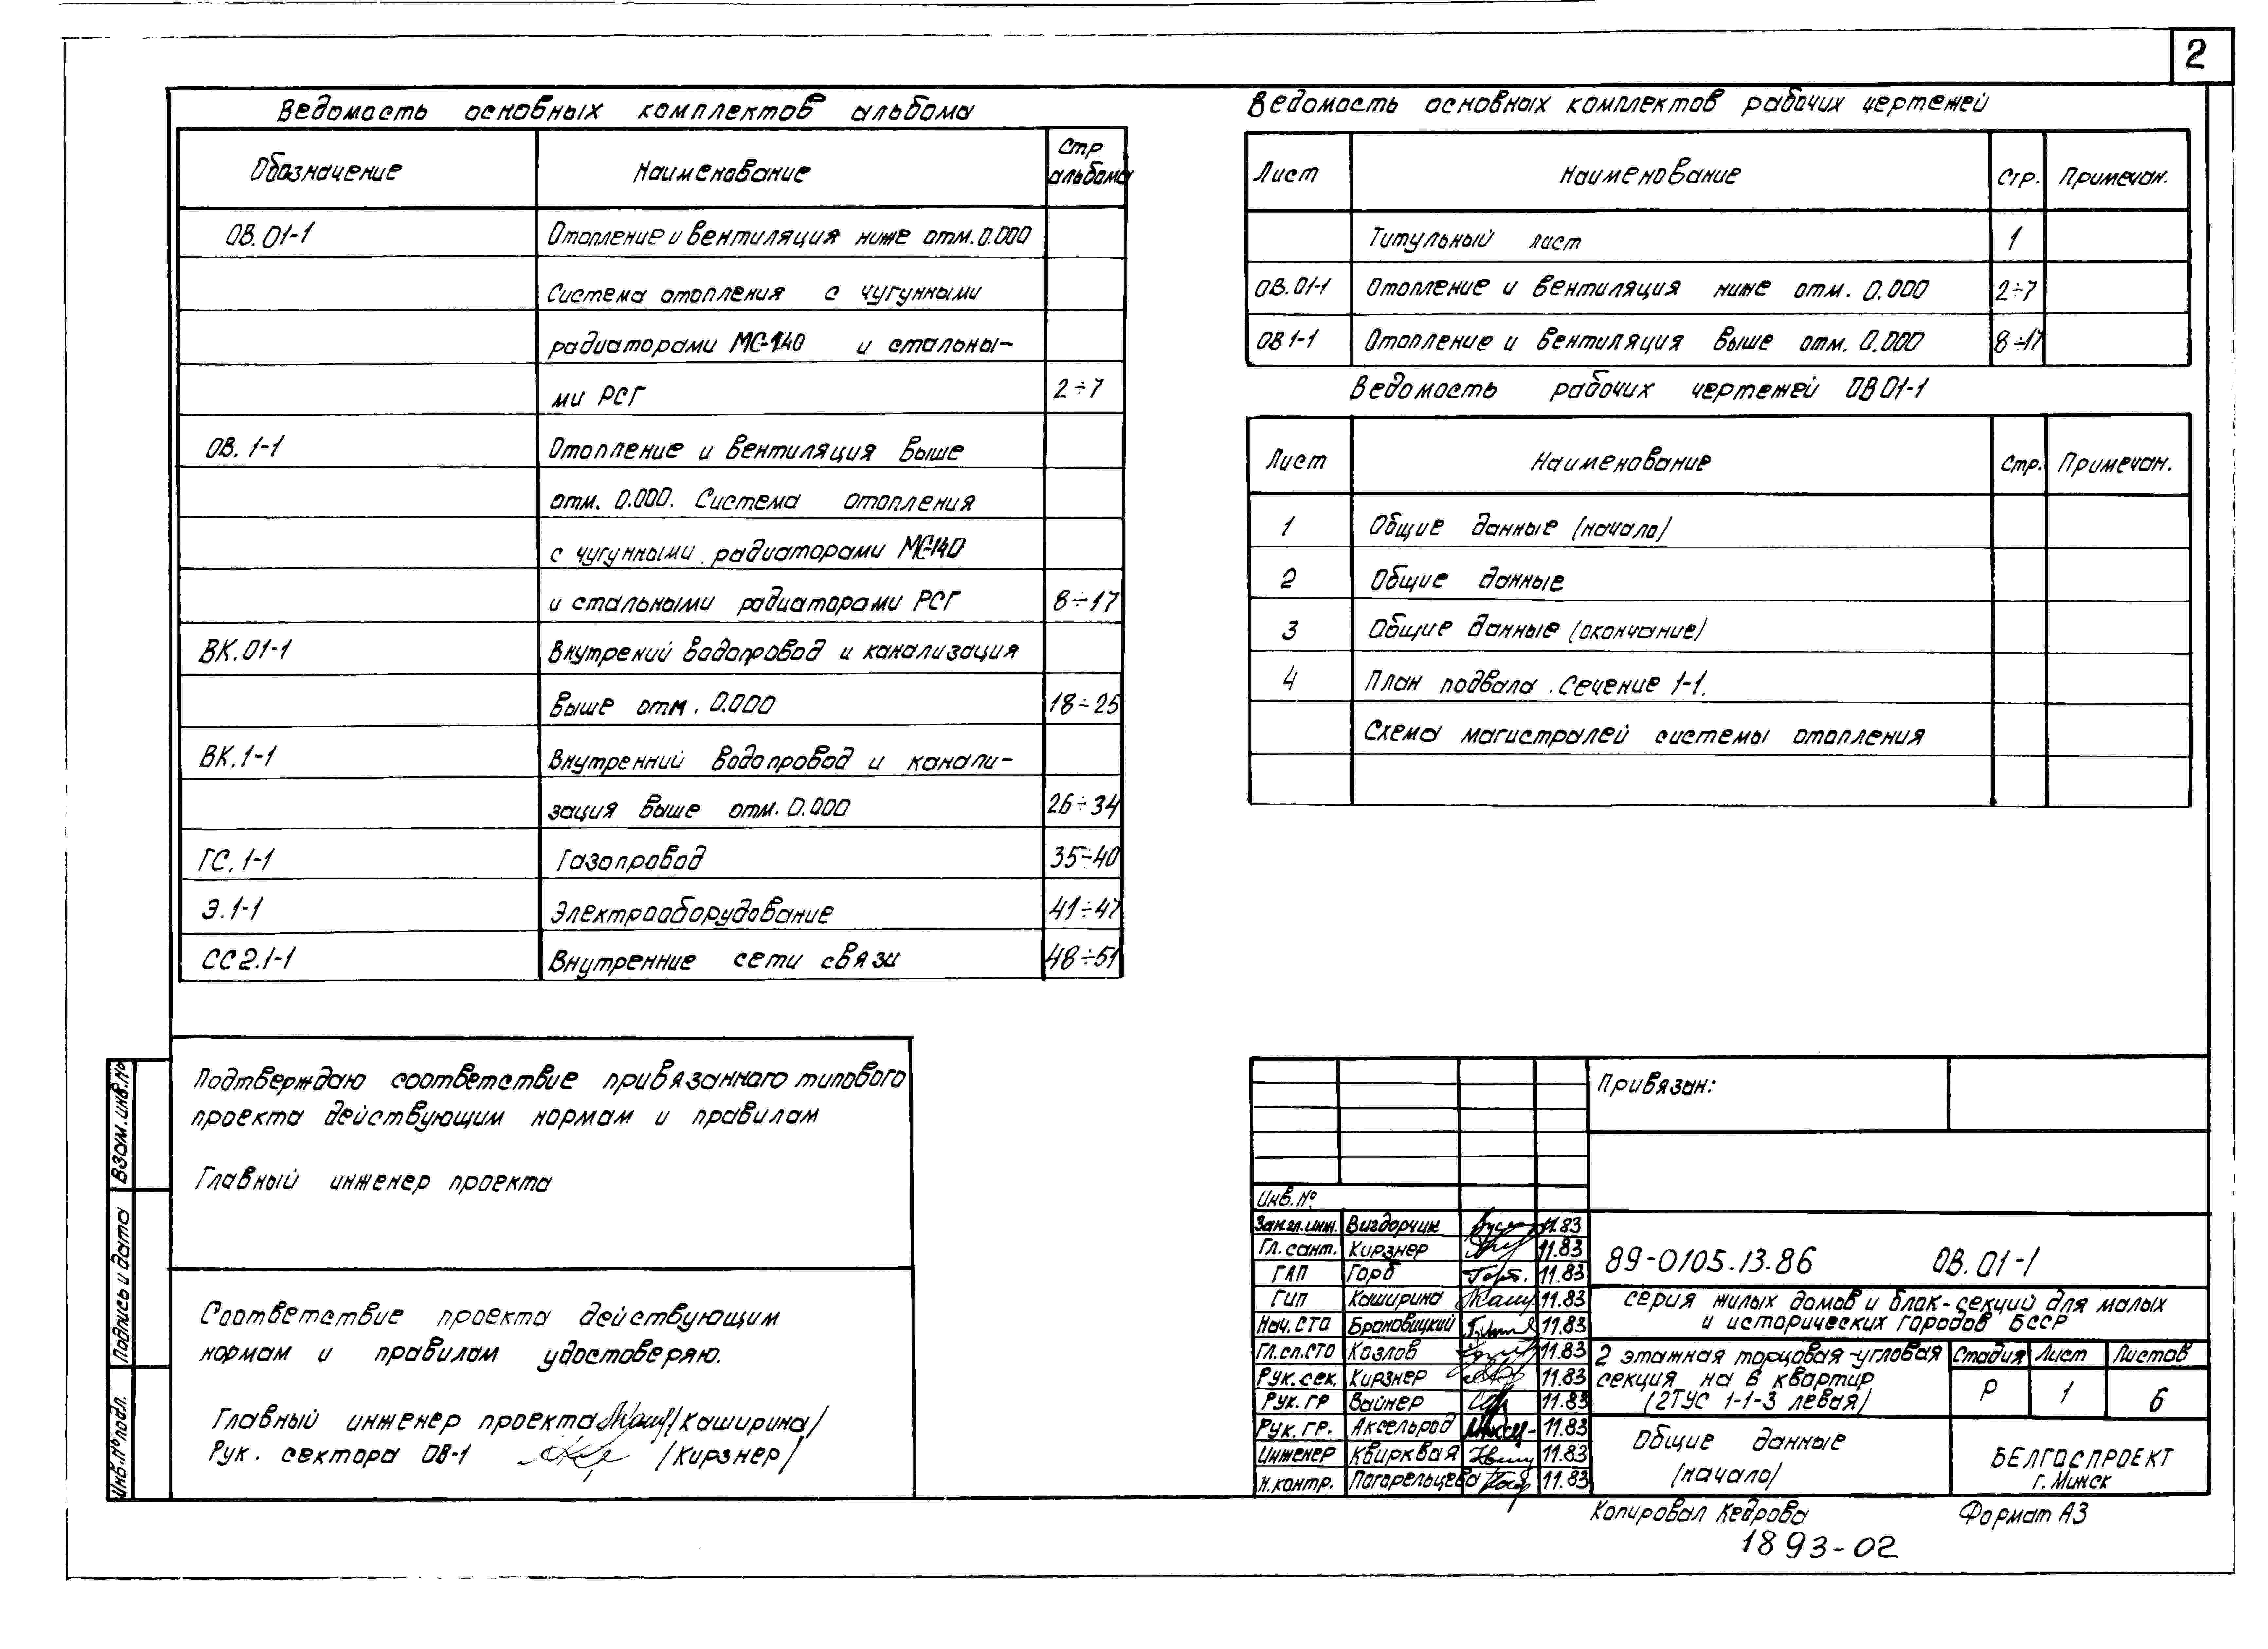 2
Ведомость основных комплектов альбома
Обозначение Наименование Стр альбома
ОВ.01-1 Отопление и вентиляция ниже отм. 0.000
Система отопления с чугунными
радиаторами МС-140 и стальны-
ми РСГ 2÷7
ОВ. 1-1 Отопление и вентиляция выше
отм. 0.000. Система отопления
с чугунными радиаторами МС-140
и стальными радиаторами РСГ 8÷17
ВК.01-1 Внутрений водопровод и канализация
выше отм. 0.000 18÷25
ВК.1-1 Внутренний водопровод и канали-
зация выше отм. 0.000 26÷34
ГС.1-1 Газопровод 35÷40
Э.1-1 Электрооборудование 41÷47
СС2.1-1 Внутренние сети связи 48÷51
Ведомость основных комплектов рабочих чертежей
Лист Наименование Стр. Примечан.
Титульный лист 1
ОВ.01-1 Отопление и вентиляция ниже отм. 0.000 2÷7
ОВ 1-1 Отопление и вентиляция выше отм. 0.000 8÷17
Ведомость рабочих чертежей ОВ 01-1
Лист Наименование Стр. Примечан.
1 Общие данные (начало)
2 Общие данные
3 Общие данные (окончание)
4 План подвала. Сечение 1-1.
Схема магистралей системы отопления
Подтверждаю соответствие привязанного типового
проекта действующим нормам и правилам
Главный инженер проекта
Соответствие проекта действующим
нормам и правилам удостоверяю.
Главный инженер проекта /Каширина/
Рук. сектора ОВ-1 /Кирзнер/
Взам. инв. №
Подпись и дата
Инв. № подл.
Привязан:
Инв. №
Зам.гл.инж. Виздорчик 11.83
Гл. сант. Кирзнер 11.83
ГАП Горб 11.83
ГИП Каширина 11.83
Нач. СТО Броновицкий 11.83
Гл.сп.СТО Козлов 11.83
Рук. сек. Кирзнер 11.83
Рук. гр Вайнер 11.83
Рук. гр. Аксельрод 11.83
Инженер Квирквая 11.83
Н.контр. Погорельцева 11.83
89-0105.13.86 ОВ. 01-1
серия жилых домов и блок-секций для малых
и исторических городов БССР
2 этажная торцовая-угловая
секция на 8 квартир
(2ТУС 1-1-3 левая)
Стадия Лист Листов
Р 1 6
Общие данные
(начало)
БЕЛГОСПРОЕКТ
г. Минск
Копировал Кедрова Формат А3
1893-02